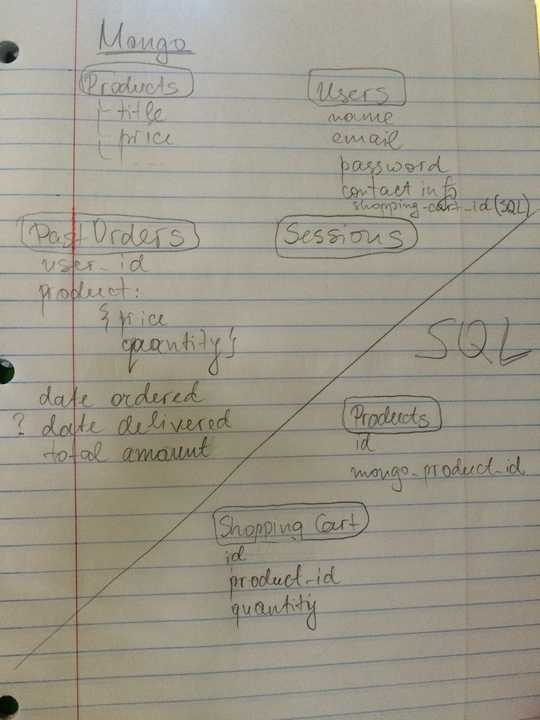 Mongo
Products
title
price
Users
name
email
password
contact info
shopping-cart-id (SQL)
Past Orders
user-id
product:
{ price
quantity }
date ordered
? date delivered
total amount
Sessions
SQL
Products
id
mongo-product-id
Shopping Cart
id
product-id
quantity